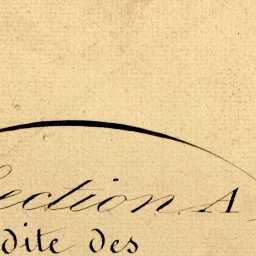 Section A
dite des